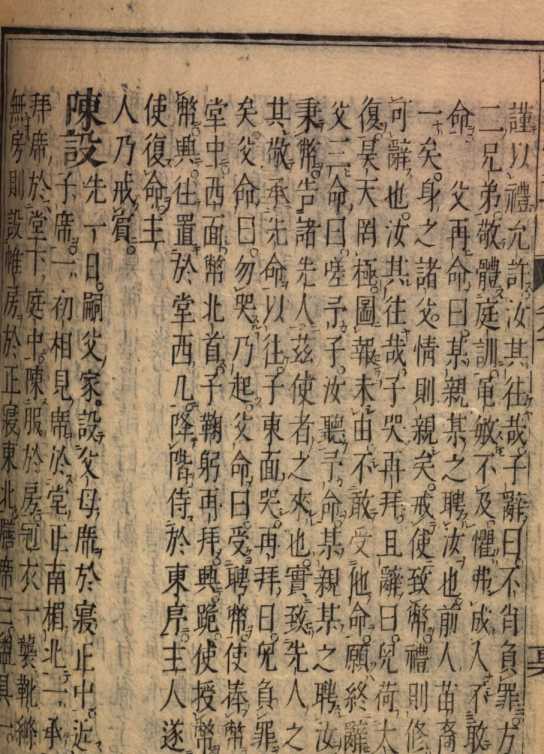 謹以禮允許汝其往哉子辭曰不肖負罪方
二兄弟敬體庭訓黽敏不及懼弗成人不敢
命父再命曰某親某之聘汝也前人菑畬
一矣身之諸父情則親矣戒使致幣禮則修
可辭也汝其往哉子哭再拜且辭曰兒荷太
復昊天罔極圖報未由不敢受他命願終辭
父三命曰嗟予子汝聽予命某親某之聘汝
秉幣告諸先人茲使者之來也實致先人之
其敬承先命以往子東面哭再拜曰兒負罪
矣父命曰勿哭乃起父命曰受聘幣使捧幣
堂中西面幣北首子鞠躬再拜興跪使授幣
幣興往置於堂西几降階侍於東序主人遂
使復命主
人乃戒賓
陳設先一日嗣父家設父母席於寢正中近
子席一初相見席於堂正南楣北一承
拜席於堂下庭中陳服於房冠衣一襲靴絲
無房則設帷房於正寢東北席三具一